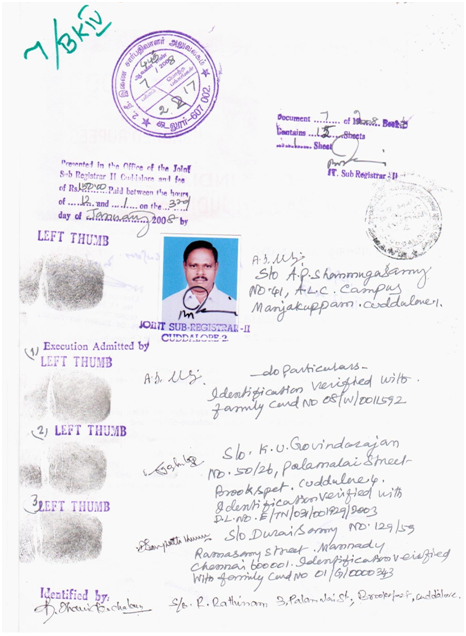 7/BK IV
2-ம் இணை சார்பதிவாளர் அலுவலகம்
கடலூர்-607 002.
Document 7 of 2008 Book
Contains 15 Sheets
1 Sheet
JT. Sub Registrar-II
Presented in the Office of the Joint
Sub Registrar II Cuddalore and fee
of Rs. Paid between the hours
of 12 and 1 on the
day of January 2008 by
LEFT THUMB
S/o A.P. Shanmugasamy
No. 41, A.L.C. Campus
Manjakuppam. Cuddalore-1.
JOINT SUB-REGISTRAR-II
CUDDALORE-2
(1) Execution Admitted by
LEFT THUMB
-do particulars-
Identification verified with
family card No 08/W/0011592
(2) LEFT THUMB
S/o. K.U. Govindarajan
No. 50/26, Palamalai Street
Brookspet. Cuddalore.
Identification verified with
D.L.No. E/TN/031/001929/2003
3 LEFT THUMB
S/o Durai Samy No: 129/59
Ramasamy Street. Mannady
Chennai 600001. Identification verified
with family card No 01/G/0000343
Identified by:
S/o. R. Rathinam 3, Palamalai St, Brookspet, Cuddalore.